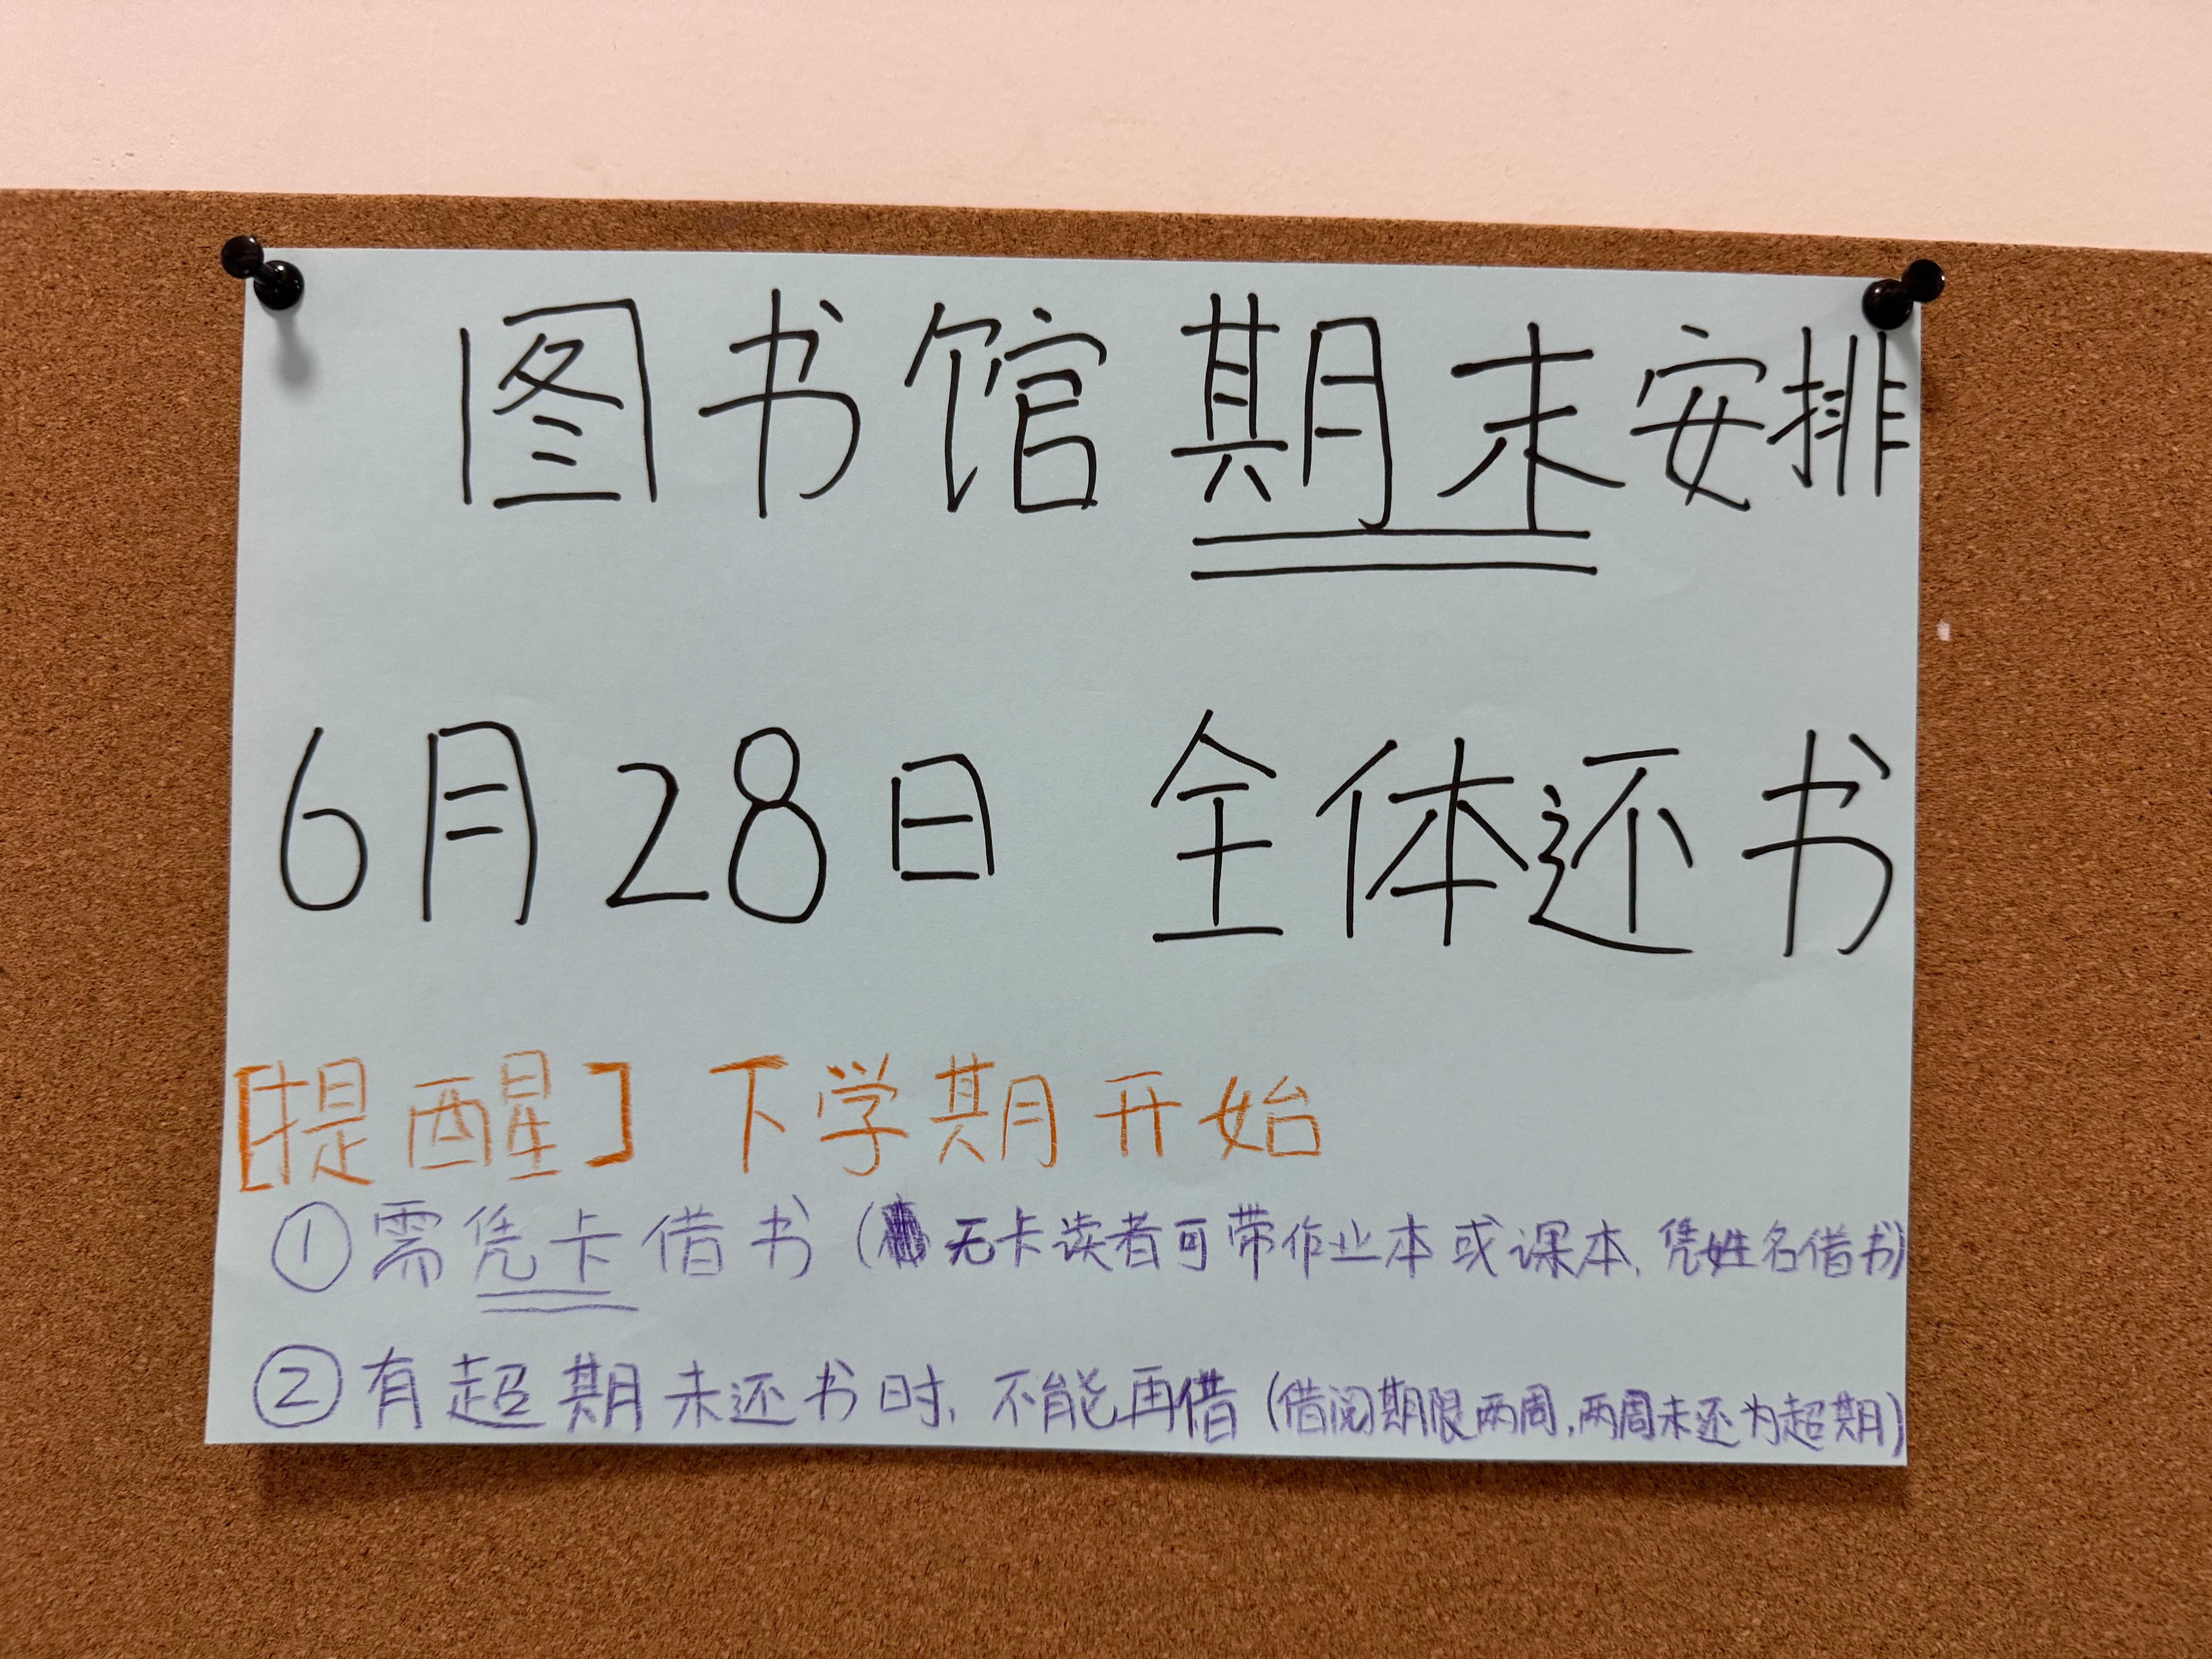 图书馆期末安排
6月28日 全体还书
[提醒] 下学期开始
①需凭卡借书(无卡读者可带作业本或课本,凭姓名借书)
②有超期未还书时,不能再借(借阅期限两周,两周未还为超期)